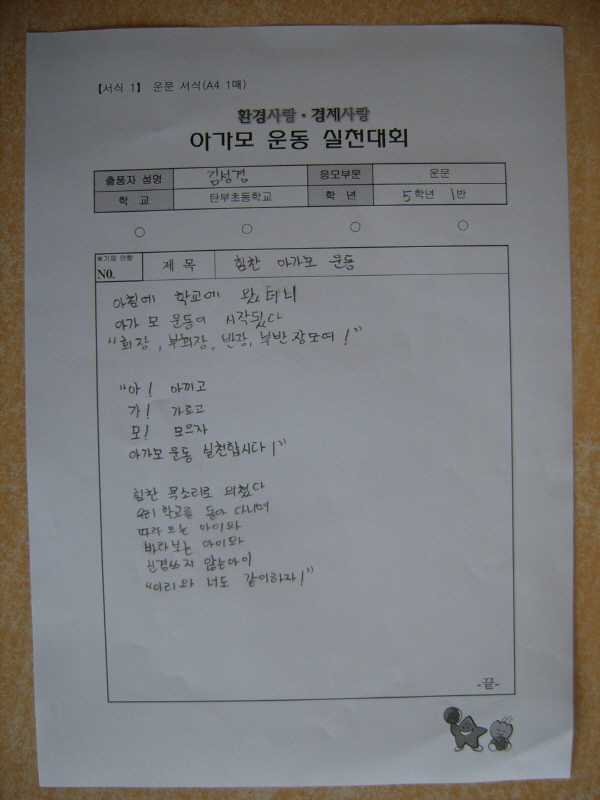 【서식 1】 운문 서식(A4 1매)
환경사랑·경제사랑
아가모 운동 실천대회
출품자 성명 김성겸 응모부문 운문
학 교 탄부초등학교 학 년 5학년 1반
※기재 안함
NO. 제 목 힘찬 아가모 운동
아침에 학교에 왔더니
아가 모 운동이 시작됬다
"회장, 부회장, 반장, 부반장모여!"
"아! 아끼고
가! 가르고
모! 모으자
아가모 운동 실천합시다!"
힘찬 목소리로 외쳤다
우리 학교를 돌아 다니며
따라 오는 아이와
바라보는 아이와
신경쓰지 않는아이
"이리 와 너도 같이하자!"
-끝-